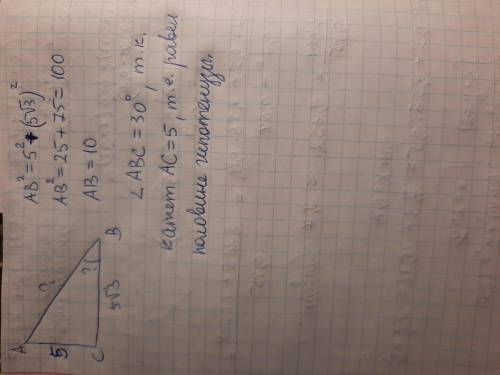 A
5
?
C
5√3
?
B
AB² = 5² + (5√3)²
AB² = 25 + 75 = 100
AB = 10
∠ABC = 30°, т.к.
катет AC = 5, т.е. равен
половине гипотенузы.